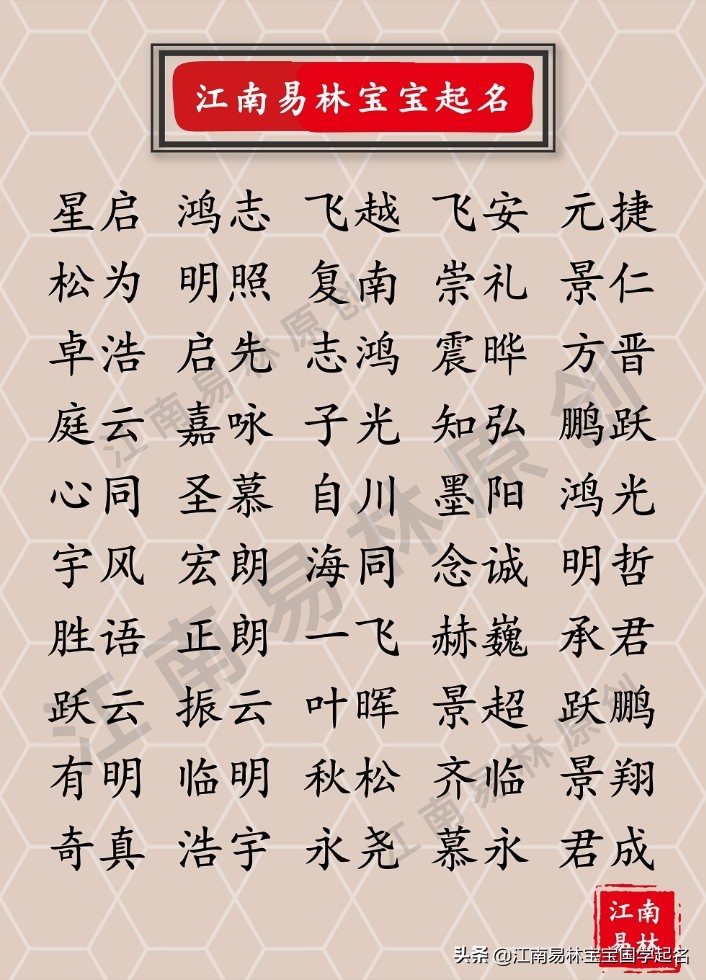 江南易林宝宝起名
星启 鸿志 飞越 飞安 元捷
松为 明照 复南 崇礼 景仁
卓浩 启先 志鸿 震晔 方晋
庭云 嘉咏 子光 知弘 鹏跃
心同 圣慕 自川 墨阳 鸿光
宇风 宏朗 海同 念诚 明哲
胜语 正朗 一飞 赫巍 承君
跃云 振云 叶晖 景超 跃鹏
有明 临明 秋松 齐临 景翔
奇真 浩宇 永尧 慕永 君成
江南易林原创
江南易林原创
江南易林原创
江南
易林
头条 @江南易林宝宝国学起名